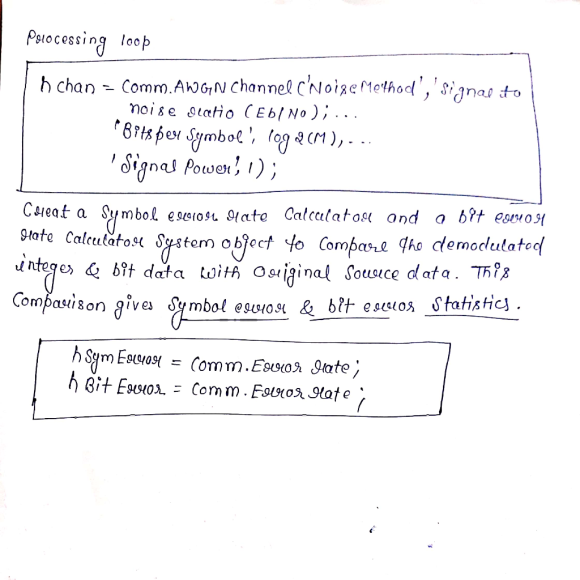 Processing loop
h chan = Comm.AWGN Channel ('Noise Method', 'Signal to
noise ratio (Eb/No); ...
'Bits per Symbol', log 2(M), ...
'Signal Power', 1);
Creat a Symbol error rate Calculator and a bit error
rate Calculator System object to Compare the demodulated
integer & bit data with Original Source data. This
Comparison gives Symbol error & bit error Statistics.
h Sym Error = Comm.Error rate;
h Bit Error = Comm.Error rate;